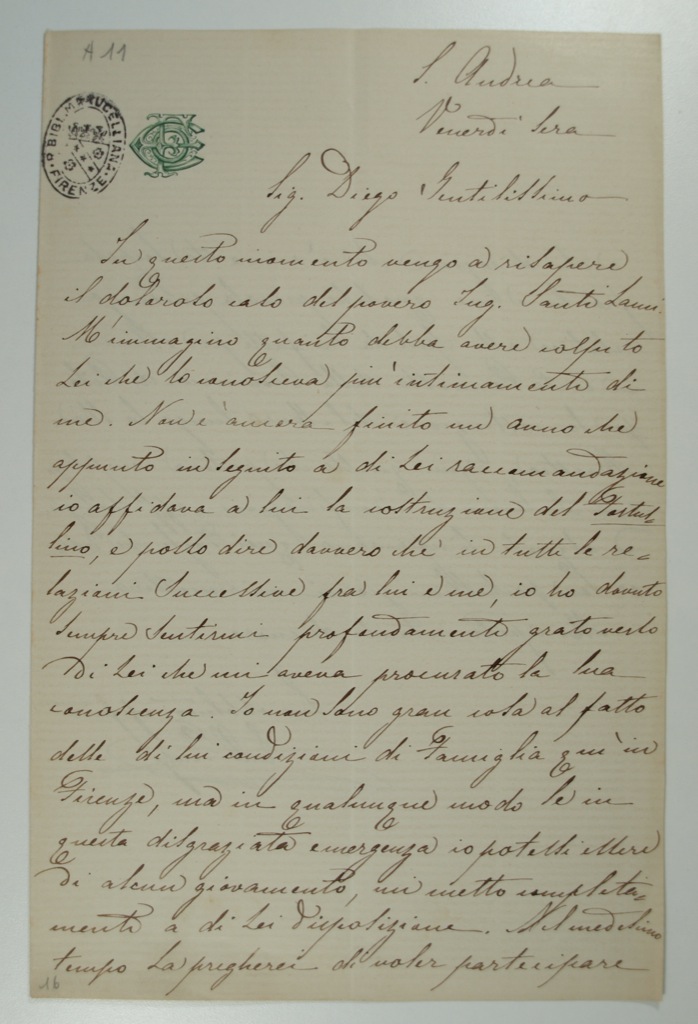 A 11
R. BIBL. MARUCELLIANA
FIRENZE
S. Andrea
Venerdì sera
Sig. Diego Gentilissimo
In questo momento vengo a risapere
il doloroso caso del povero Ing. Santi Lami.
M'immagino quanto debba avere colpito
Lei che lo conosceva più intimamente di
me. Non è ancora finito un anno che
appunto in seguito a di Lei raccomandazione
io affidava a lui la costruzione del Fortul-
lino, e posso dire davvero che in tutte le re-
lazioni successive fra lui e me, io ho dovuto
sempre sentirmi profondamente grato verso
di Lei che mi aveva procurato la sua
conoscenza. Io non sono gran cosa al fatto
delle di lui condizioni di Famiglia quì in
Firenze, ma in qualunque modo se in
questa disgraziata emergenza io potessi essere
di alcun giovamento, mi metto completa-
mente a di Lei disposizione. Nel medesimo
tempo La pregherei di voler partecipare
16